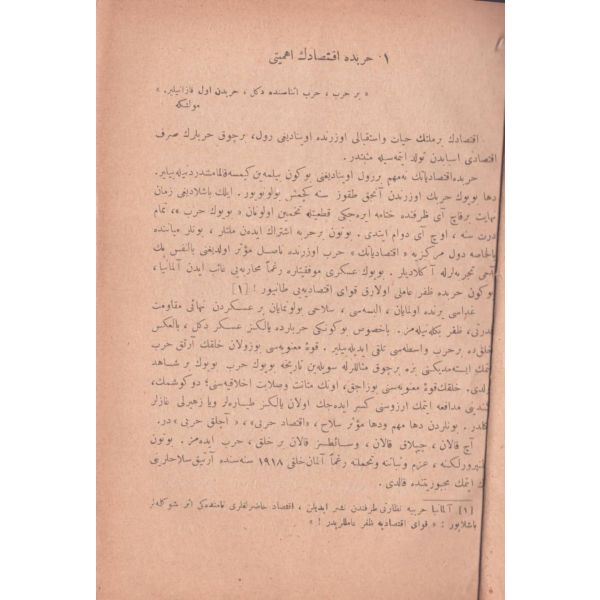 ١٠ حربده اقتصادك اهميتى
« بر حرب ، حرب اثناسنده دكل ، حربدن اول قازانيلير. »
مولتكه
اقتصادك بر ملتك حيات واستقبالى اوزرنده اوينادیغى رول، برچوق حربلرك صرف
اقتصادى اسبابدن تولد ايتمه‌سيله مثبتدر .
حربده اقتصادياتك نه مهم بر رول اوينادیغنى بوكون بيلمه‌ين كيمسه قالمامشدر دينيله‌بيلير.
دها بويوك حربك اوزرندن آنجق طقوز سنه كچمش بولونويور . ايلك باشلادیغى زمان
نهايت برقاچ آى ظرفنده ختامه ايره‌جكى قطعيتله تخمين اولونان « بويوك حرب » ، تمام
درت سنه ، اوچ آى دوام ايتدى . بوتون بو حربه اشتراك ايدن ملتلر ، بونلر مياننده
بالخاصه دول مركزيه « اقتصادياتك » حرب اوزرنده ناصل مؤثر اولديغنى بالنفس پك
آجى تجربه‌لرله آكلاديلر . بويوك عسكرى موفقيتلره رغماً محاربه‌يى غائب ايدن آلمانيا،
بوكون حربده ظفر عاملى اولارق قواى اقتصاديه‌يى طانيور ! [١]
غداسى يرنده اولمايان ، البسه‌سى ، سلاحى بولونمايان بر عسكردن نهائى مقاومت
قدرتى، ظفر بكله‌نيله‌مز . باخصوص بوكونكى حربلرده يالكز عسكر دكل ، بالعكس
خلق ده بر حرب واسطه‌سى تلقى ايديله‌بيلير . قوۀ معنويه‌سى بوزولان خلقك آرتق حرب
ايتمك ايسته‌مديكنى بزه برچوق مثاللرله سويله‌ين تاريخه بويوك حرب بويوك بر شاهد
اولدى. خلقك قوۀ معنويه‌سنى بوزاجق، اونك متانت وصلابت اخلاقيه‌سنى ؛ دوكوشمك،
كندينى مدافعه ايتمك آرزوسنى كسر ايده‌جك اولان يالكز طياره‌لر ويا زهيرلى غازلر
دكلدر . بونلردن دها مهم ودها مؤثر سلاح ، « اقتصاد حربى » ، « آچلق حربى » در .
آچ قالان ، چيپلاق قالان ، وسائطسز قالان بر خلق ، حرب ايده‌مز . بوتون
وطنپرورلكنه ، عزم وثباتنه وتحملنه رغماً آلمان خلقى ١٩١٨ سنه‌سنده آرتيق سلاحلرينى
ترك ايتمك مجبوريتنده قالدى .
[١] آلمانيا حربيه نظارتى طرفندن نشر ايديلن ، اقتصاد حاضرلقلرى نامنده‌كى اثر شو كله‌لرله
باشلايور : « قواى اقتصاديه ظفر عامللريدر ! »